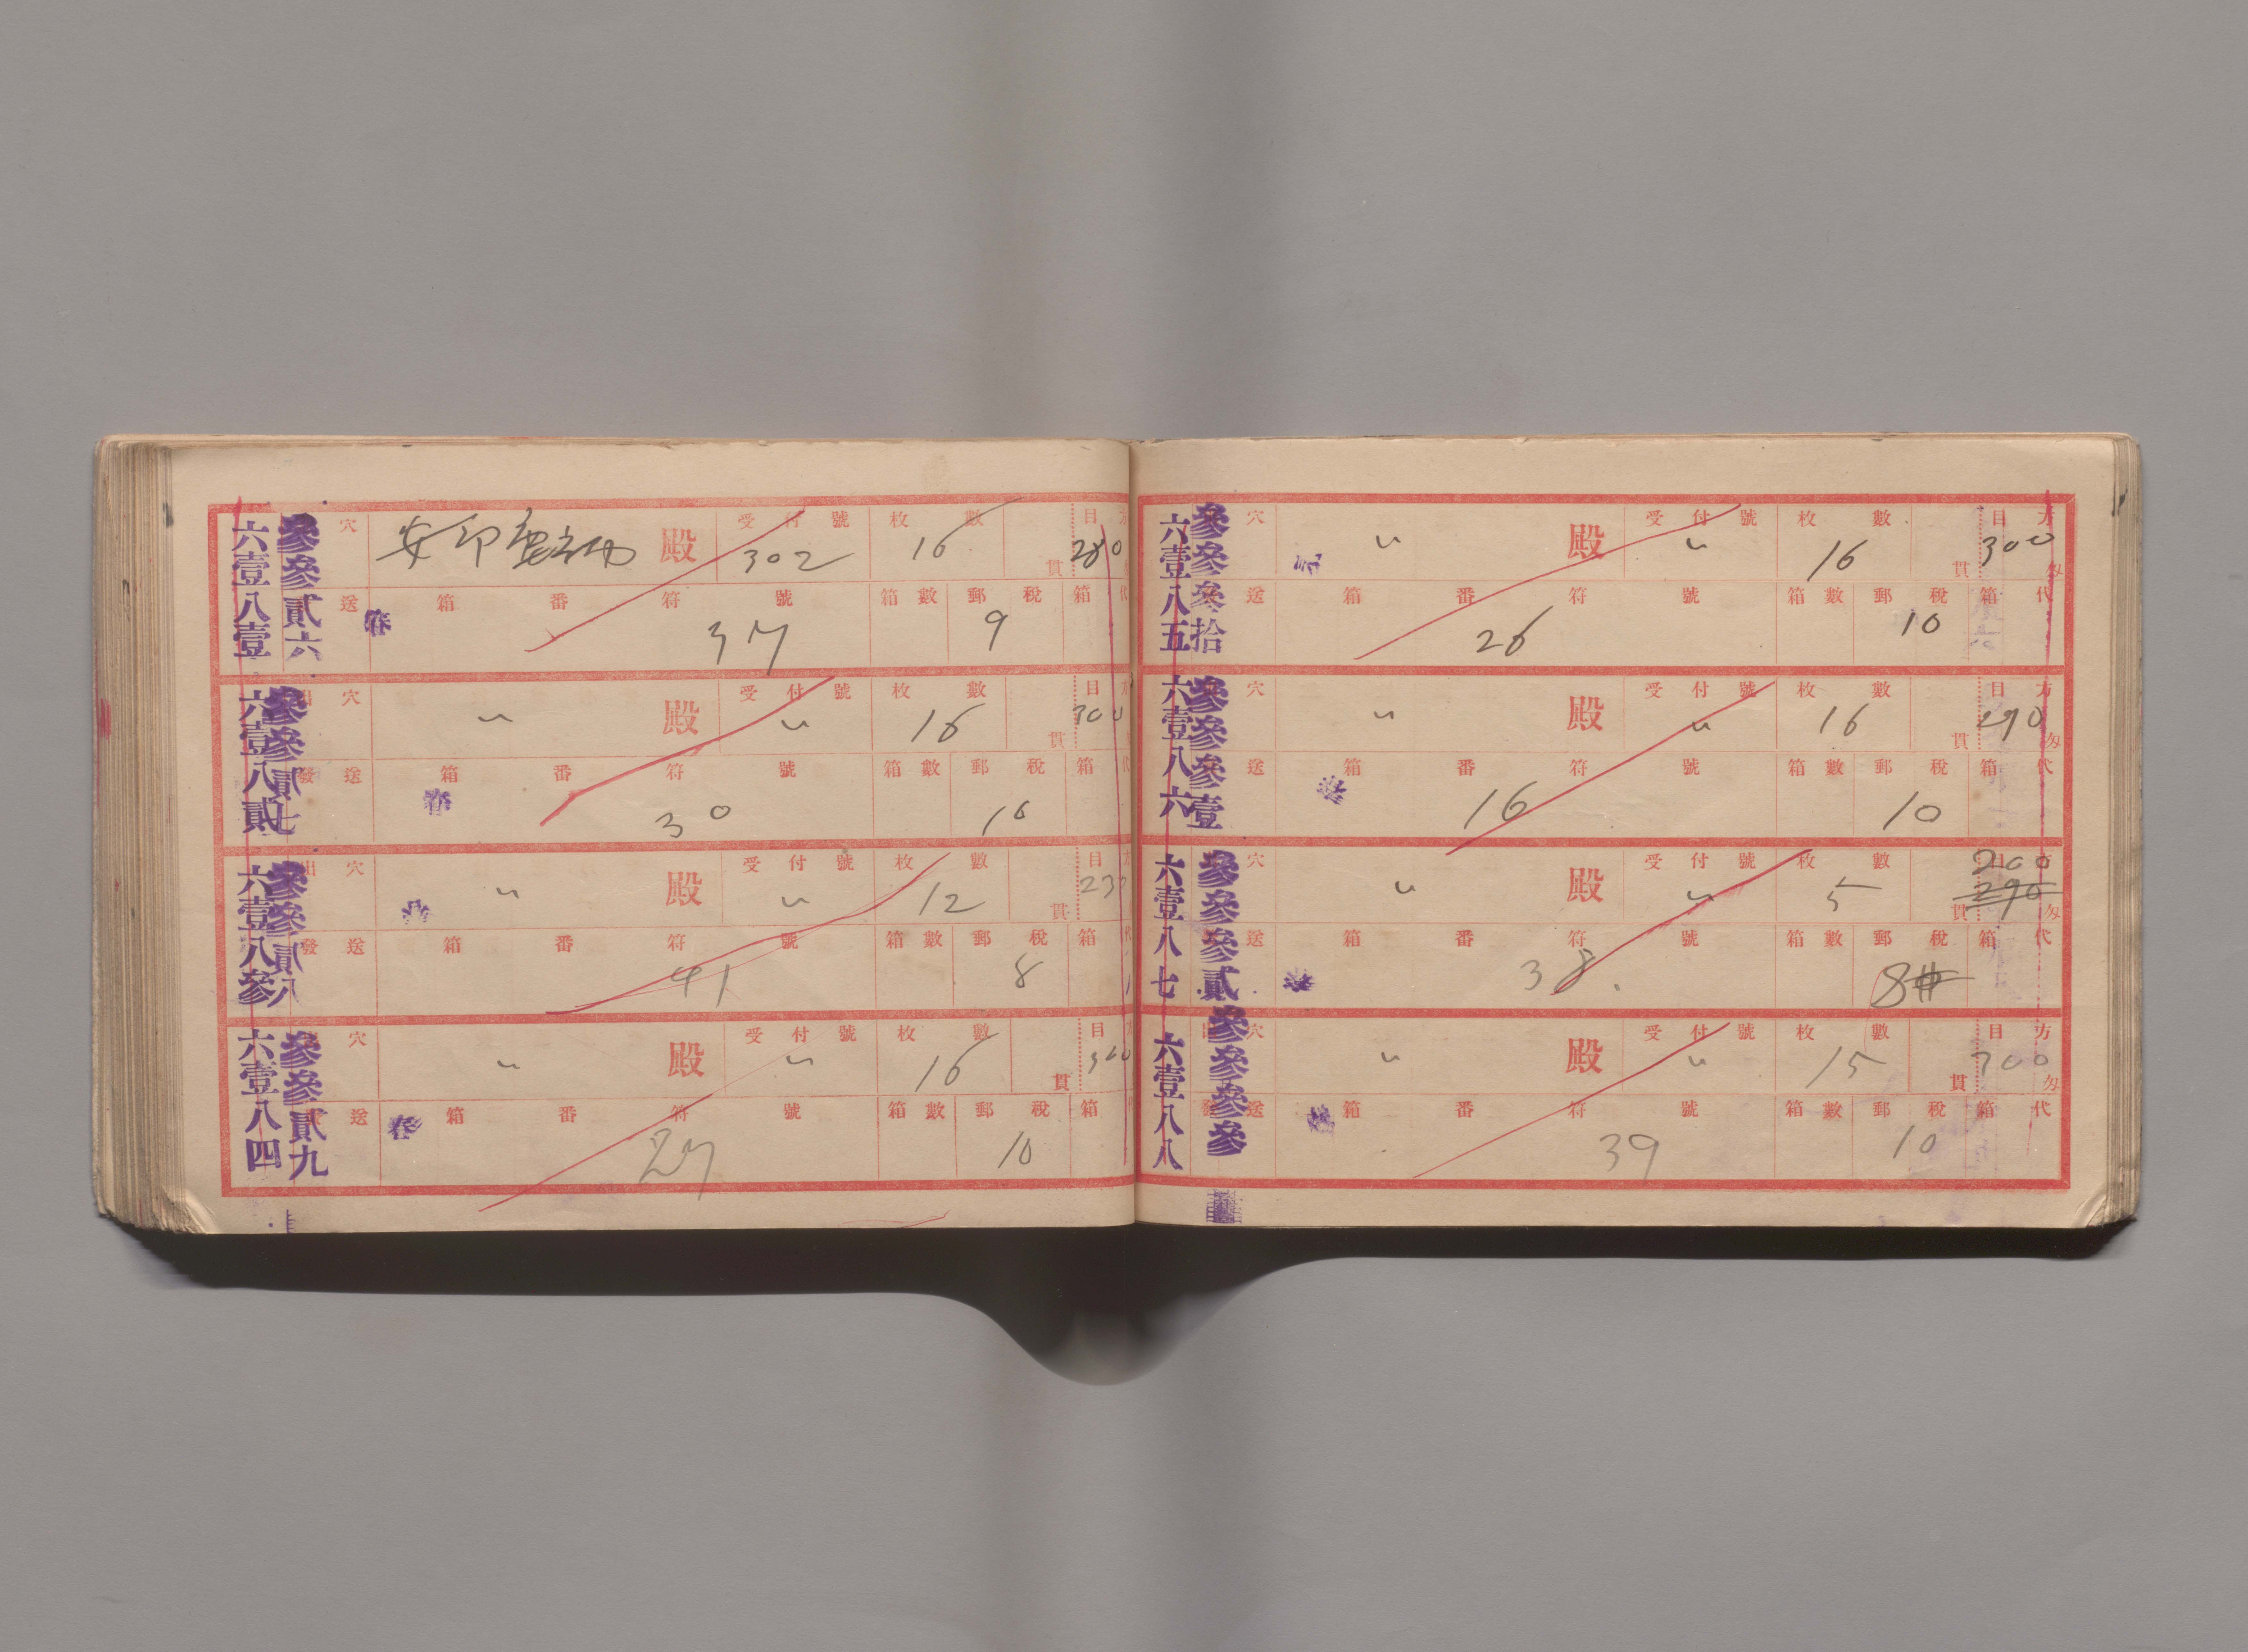 六壹八壹 參參貳六
穴 殿 受付號 302 枚數 16 貫 目 280 方
送 春 箱番符號 37 箱數 郵稅 9 箱代
六壹八貳 參參貳七
出穴 〃 殿 受付號 〃 枚數 16 貫 目 300 方
發送 春 箱番符號 30 箱數 郵稅 10 箱代
六壹八參 參參貳八
出穴 〃 殿 受付號 〃 枚數 12 貫 目 230 方
發送 箱番符號 41 箱數 郵稅 8 箱代
六壹八四 參參貳九
穴 〃 殿 受付號 〃 枚數 16 貫 目 300 方
送 春 箱番符號 27 箱數 郵稅 10 箱
六壹八五 參參參拾
穴 〃 殿 受付號 〃 枚數 16 貫 目方 300 匁
送 箱番符號 26 箱數 郵稅 10 箱代
六壹八六 參參參壹
穴 〃 殿 受付號 〃 枚數 16 貫 目方 290 匁
送 箱番符號 16 箱數 郵稅 10 箱代
六壹八七 參參參貳
穴 〃 殿 受付號 〃 枚數 5 貫 目方 200 290 匁
送 箱番符號 38. 箱數 郵稅 8 箱代
六壹八八 參參參參
出穴 〃 殿 受付號 〃 枚數 15 貫 目方 300 匁
發送 箱番符號 39 箱數 郵稅 10 箱代